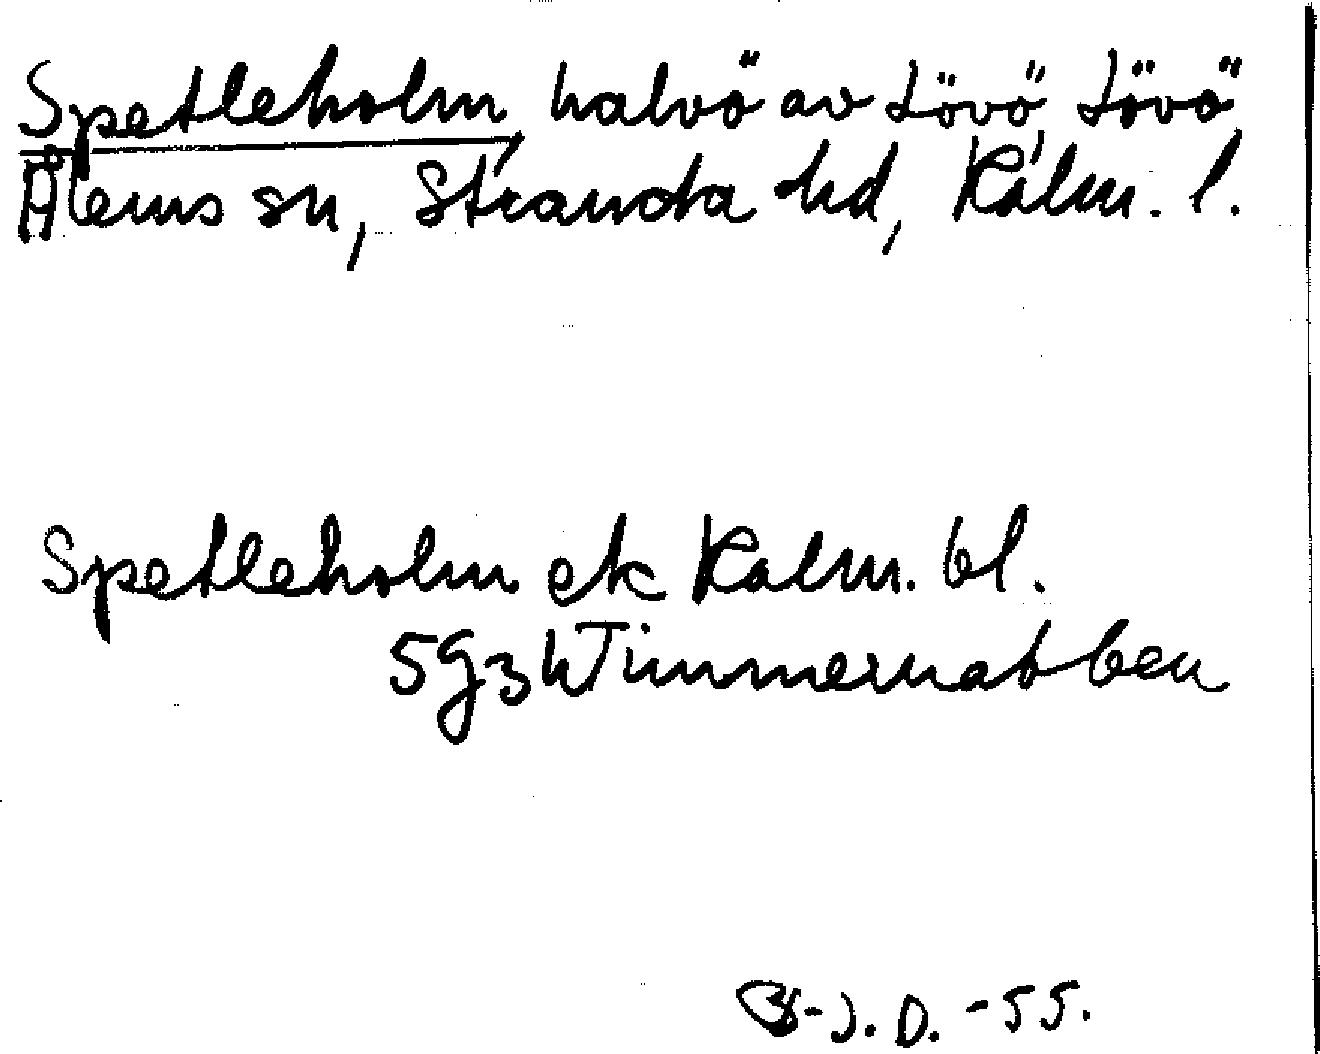 Spetleholm, halvö av Lövö, Lövö,
Ålems sn, Stranda hd, Kalm. l.
Spetleholm ek Kalm. bl.
5g3h Timmernabben
B-J. D. -55.